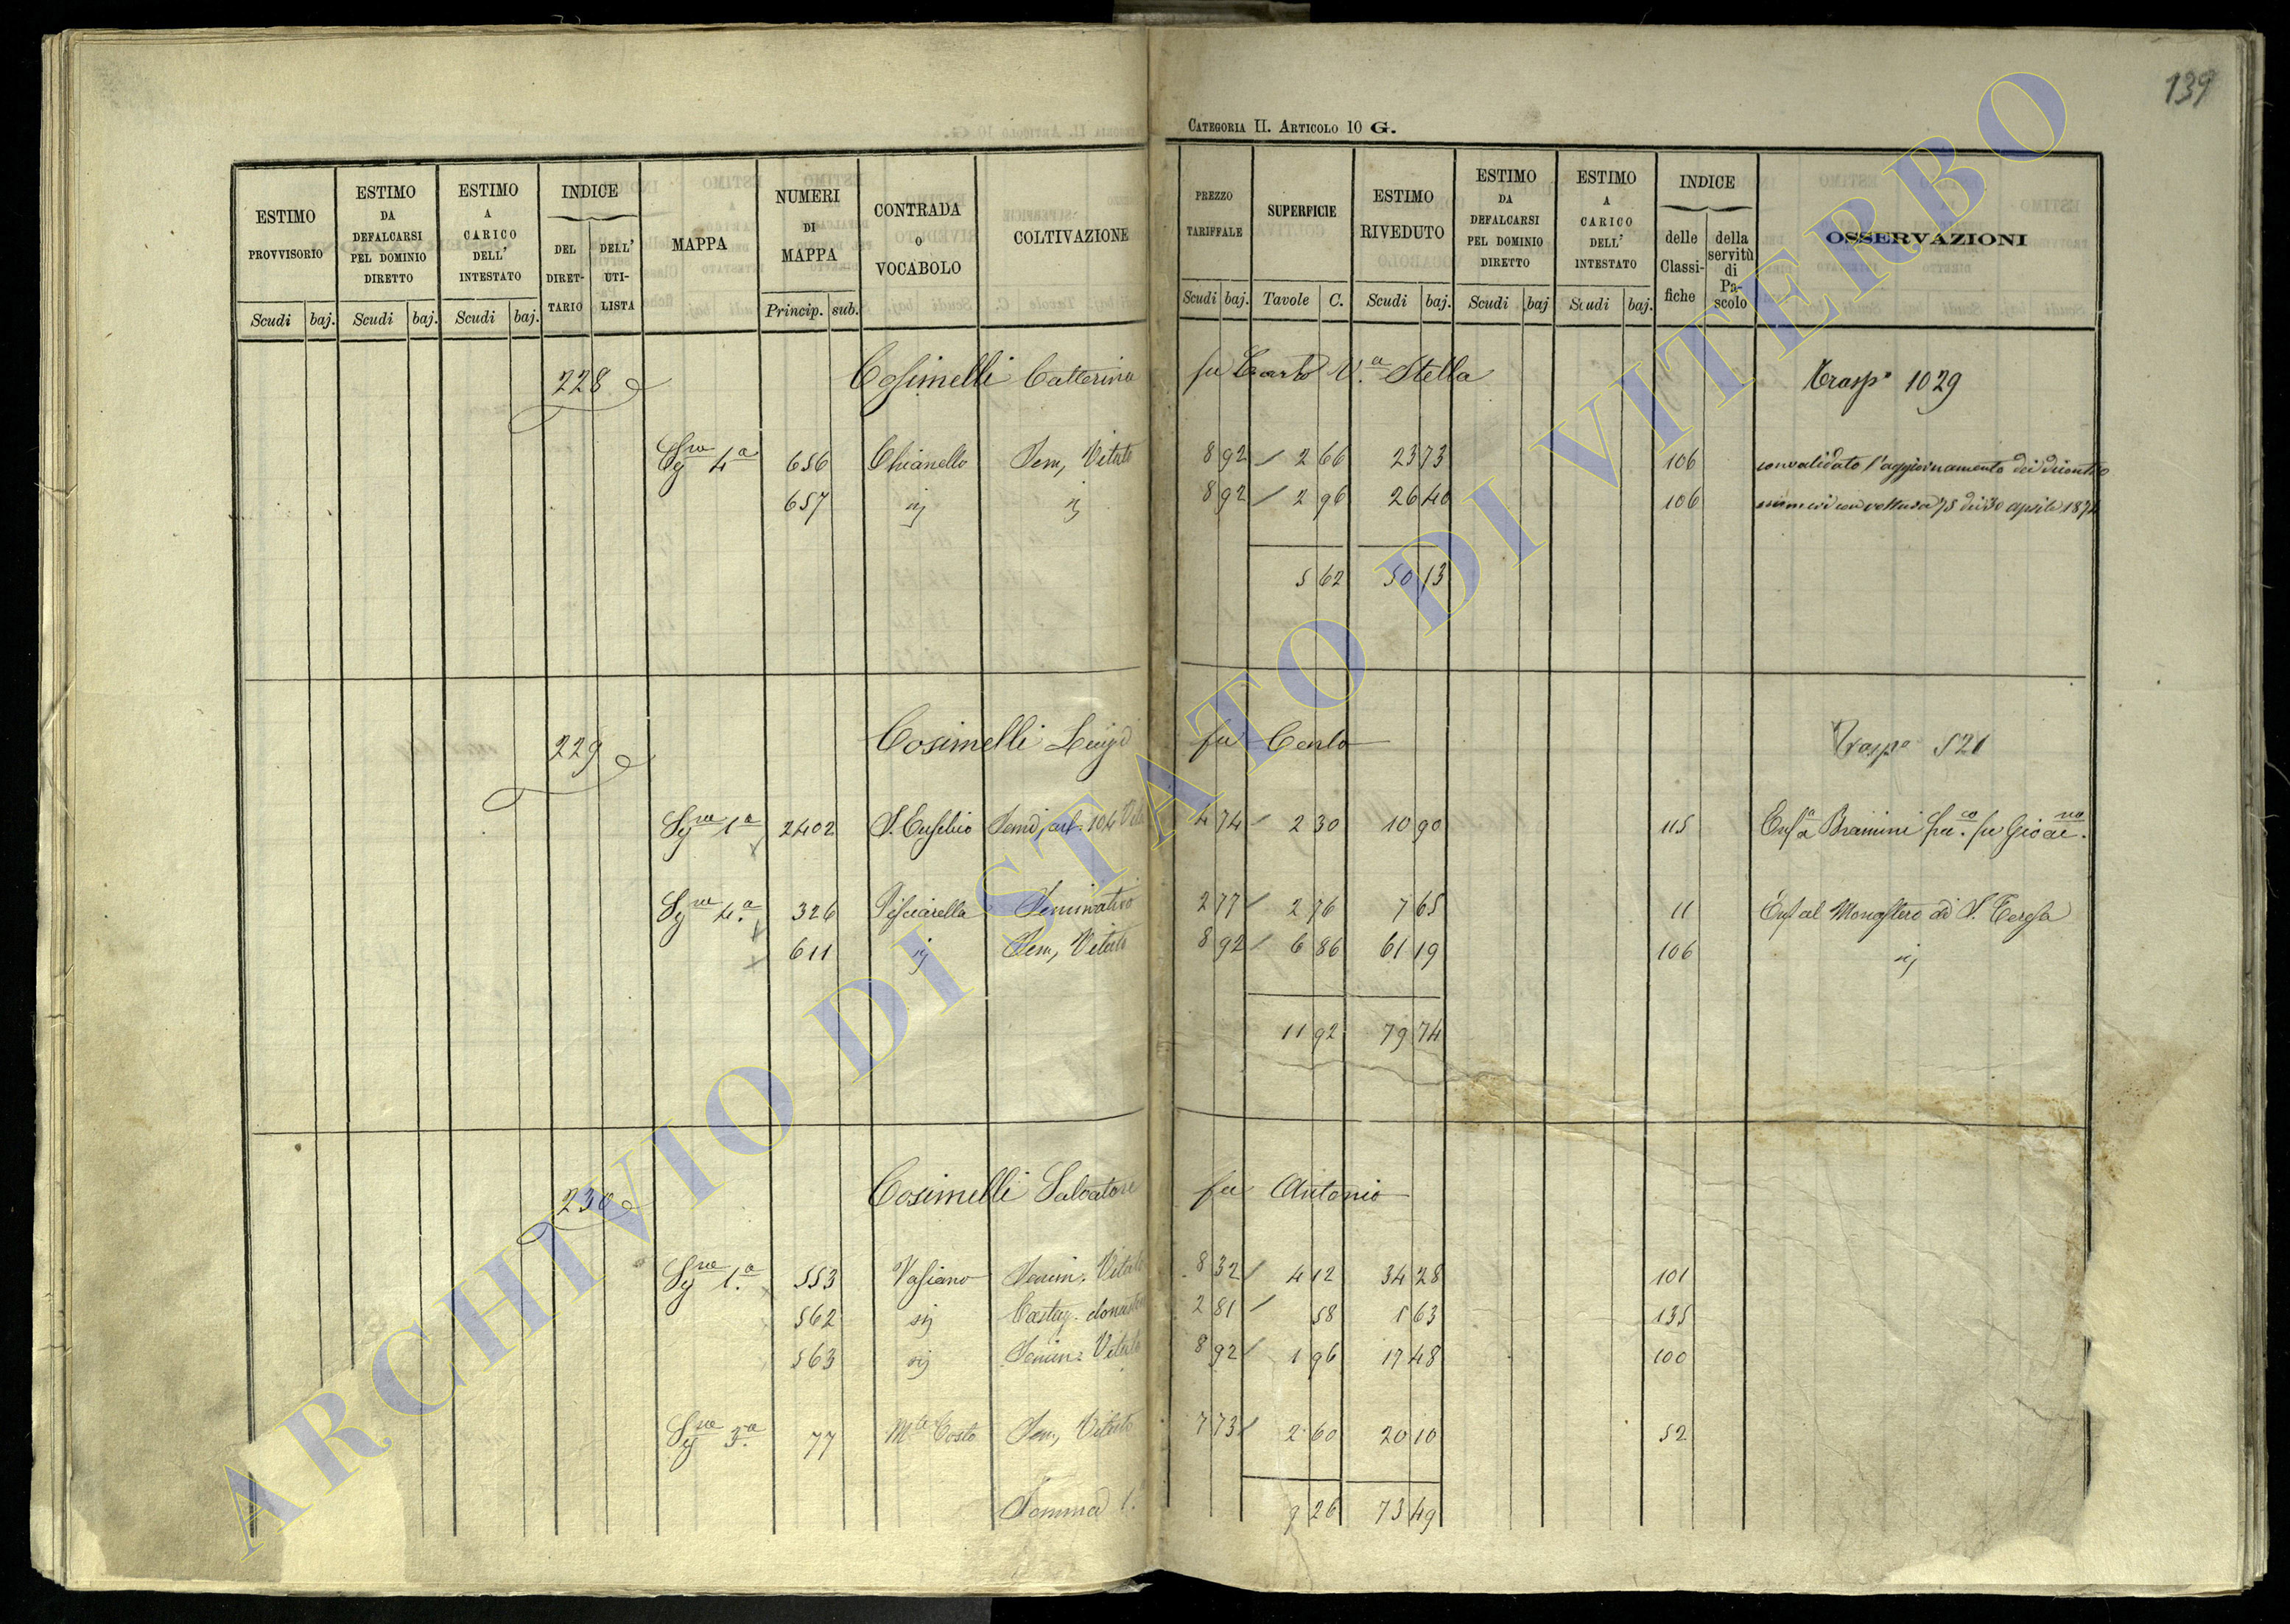 139
CATEGORIA II. ARTICOLO 10 G.
ESTIMO PROVVISORIO
ESTIMO DA DEFALCARSI PEL DOMINIO DIRETTO
ESTIMO A CARICO DELL' INTESTATO
INDICE
DEL DIRET-TARIO
DELL' UTI-LISTA
MAPPA
NUMERI DI MAPPA
CONTRADA O VOCABOLO
COLTIVAZIONE
PREZZO TARIFFALE
SUPERFICIE
ESTIMO RIVEDUTO
ESTIMO DA DEFALCARSI PEL DOMINIO DIRETTO
ESTIMO A CARICO DELL' INTESTATO
INDICE
delle Classi-fiche
della servitù di Pa-scolo
OSSERVAZIONI
Scudi baj. Scudi baj. Scudi baj. Princip. sub. Scudi baj. Tavole C. Scudi baj. Scudi baj Scudi baj.
228 Cosimelli Catterina fu Carlo V.a Stella Trasp.o 1029
4a 656 Chianello Sem, Vitato 8 92 2 66 23 73 106 convalidato l'aggiornamento dei
657 ij ij 8 92 2 96 26 40 106 30 aprile 187
5 62 50 13
229 Cosimelli Luigi fu Carlo Trasp.o 521
1a 2402 S. Eusebio 4 74 2 30 10 90 115 Enf.a Bramini
4.a 326 Pisciarella Seminativo 2 77 2 76 7 65 11 Enf al Monastero di S. Teresa
611 ij Sem, Vitato 8 92 6 86 61 19 106 ij
11 92 79 74
230 Cosimelli Salvatore fu Antonio
1.a 553 Vasiano Semin. Vitato 8 32 4 12 34 28 101
562 ij Castag. 2 81 58 1 63 135
563 ij Semin. Vitato 8 92 1 96 17 48 100
3.a 77 M.te Sem, Vitato 7 73 2 60 20 10 52
Somma 9 26 73 49
ARCHIVIO DI STATO DI VITERBO